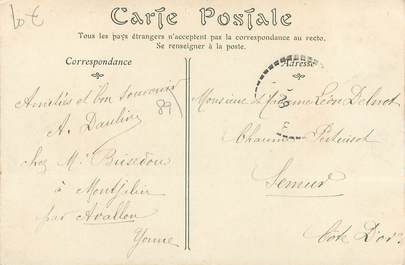 10 €
Carte Postale
Tous les pays étrangers n'acceptent pas la correspondance au recto.
Se renseigner à la poste.
Correspondance
Amitiés et bon souvenir
89
A. Dauline
chez M.
à Montjalin
par Avallon
Yonne
Adresse
Monsieur et Madame Léon
Semur
Côte D'or